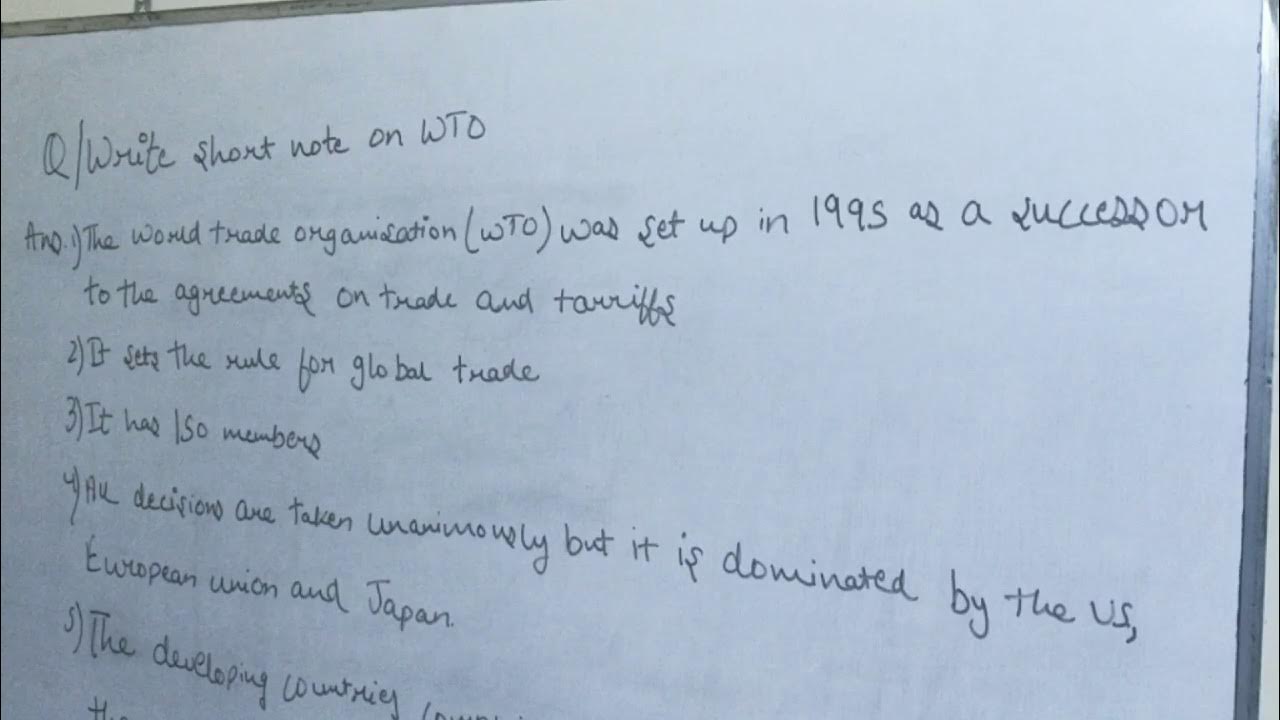 Q/Write short note on WTO
Ans. 1) The world trade organisation (WTO) was set up in 1995 as a successor
to the agreements on trade and tarriffs
2) It sets the rule for global trade
3) It has 150 members
4) All decisions are taken unanimously but it is dominated by the US,
European union and Japan.
5) The developing countries